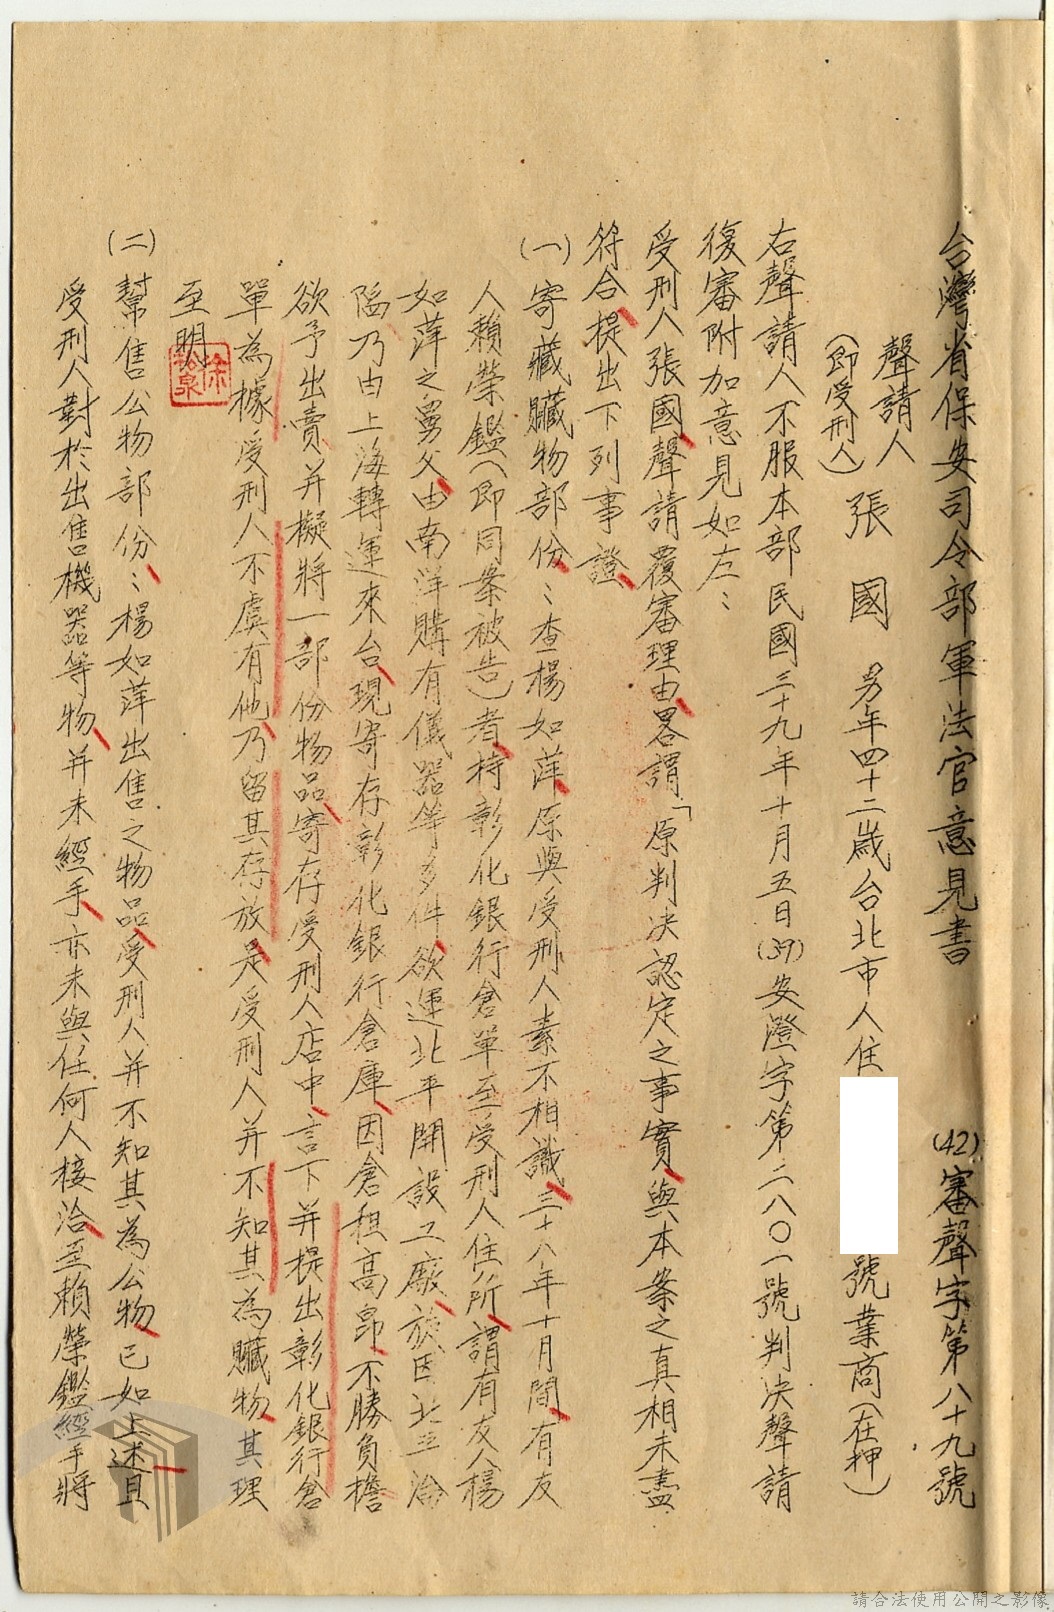 台灣省保安司令部軍法官意見書 (42)審聲字第八十九號
聲請人
(即受刑人)
張國 男年四十二歲台北市人住 號業商(在押)
右聲請人不服本部民國三十九年十月五日(39)安澄字第二八〇一號判決聲請
復審附加意見如左：
受刑人張國聲請覆審理由畧謂「原判決認定之事實與本案之真相未盡
符合提出下列事證
(一)寄藏贓物部份：查楊如萍原與受刑人素不相識三十八年十月間有友
人賴榮鑑(即同案被告)者持彰化銀行倉單至受刑人住所謂有友人楊
如萍之舅父由南洋購有儀器等多件欲運北平開設工廠旋因北平淪
陷乃由上海轉運來台現寄存彰化銀行倉庫因倉租高昂不勝負擔
欲予出賣并擬將一部份物品寄存受刑人店中言下并提出彰化銀行倉
單為據受刑人不虞有他乃留其存放是受刑人并不知其為贓物其理
至明
徐裕泉
(二)幫售公物部份：楊如萍出售之物品受刑人并不知其為公物已如上述且
受刑人對於出售機器等物并未經手亦未與任何人接洽至賴榮鑑經手將
請合法使用公開之影像